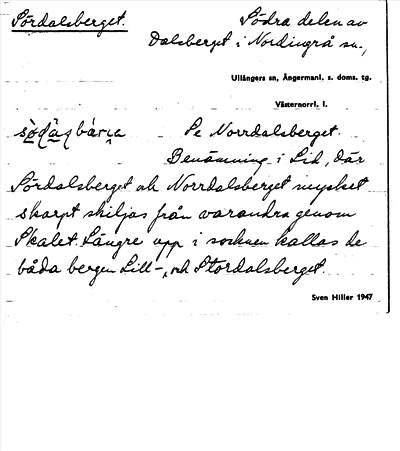 Sördalsberget. Södra delen av
Dalsberget i Nordingrå sn.,
Ullångers sn, Ångermanl. s. doms. tg.
Västernorrl. l.
Se Norrdalsberget.
Benämning i Lid, där
Sördalsberget och Norrdalsberget mycket
skarpt skiljas från varandra genom
Skalet. Längre upp i socknen kallas de
båda bergen Lill-, och Stordalsberget.
Sven Hiller 1947